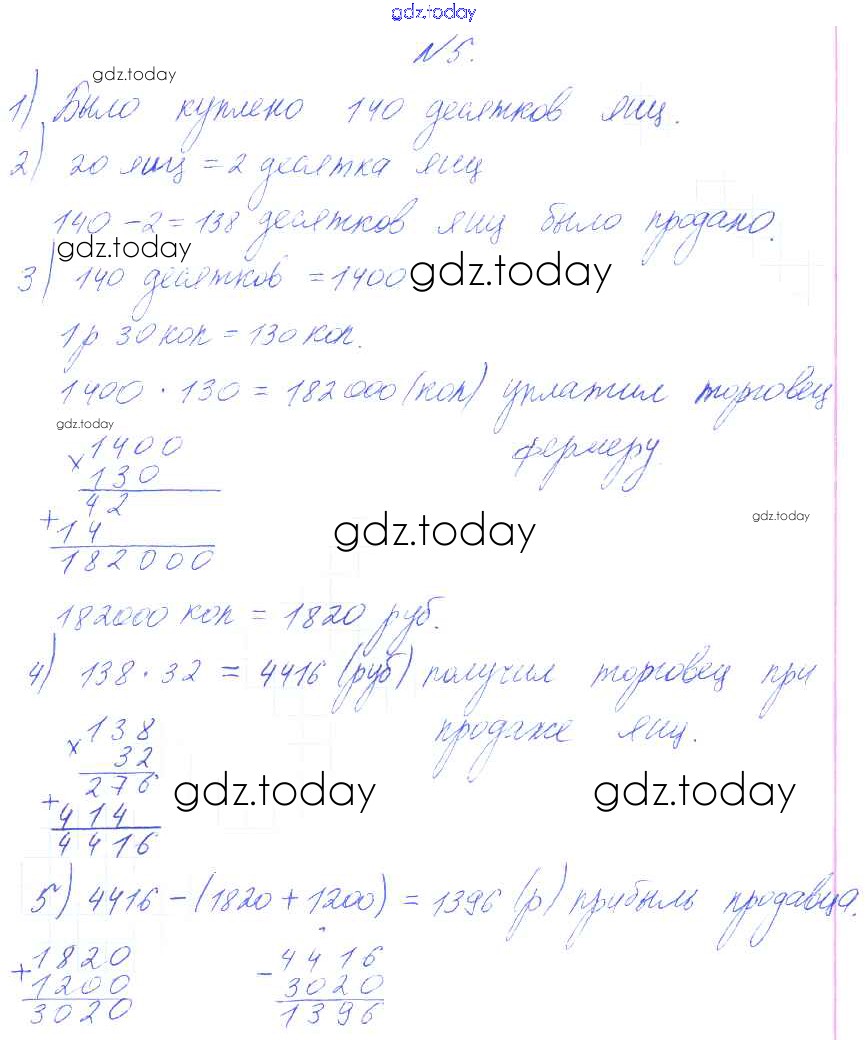 gdz.today
№5.
gdz.today
1) Было куплено 140 десятков яиц.
2) 20 яиц = 2 десятка яиц
140 - 2 = 138 десятков яиц было продано.
gdz.today
3) 140 десятков = 1400 gdz.today
1 р 30 коп = 130 коп.
1400 · 130 = 182000 (коп) уплатил торговец
фермеру.
gdz.today
× 1400
130
42
+ 14
182000
gdz.today
gdz.today
182000 коп = 1820 руб.
4) 138 · 32 = 4416 (руб) получил торговец при
продаже яиц.
× 138
32
276
+ 414
4416
gdz.today gdz.today
5) 4416 - (1820 + 1200) = 1396 (р) прибыль продавца.
+ 1820 - 4416
1200 3020
3020 1396